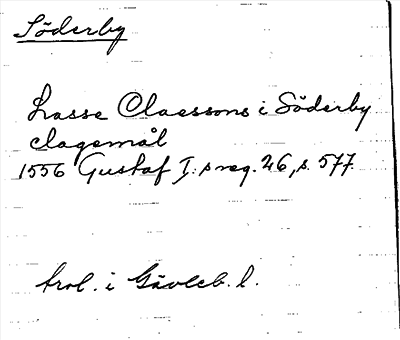 Söderby
Lasse Claessons i Söderby
clagemål
1556 Gustaf I:s reg. 26, s. 577
trol. i Gävleb. l.